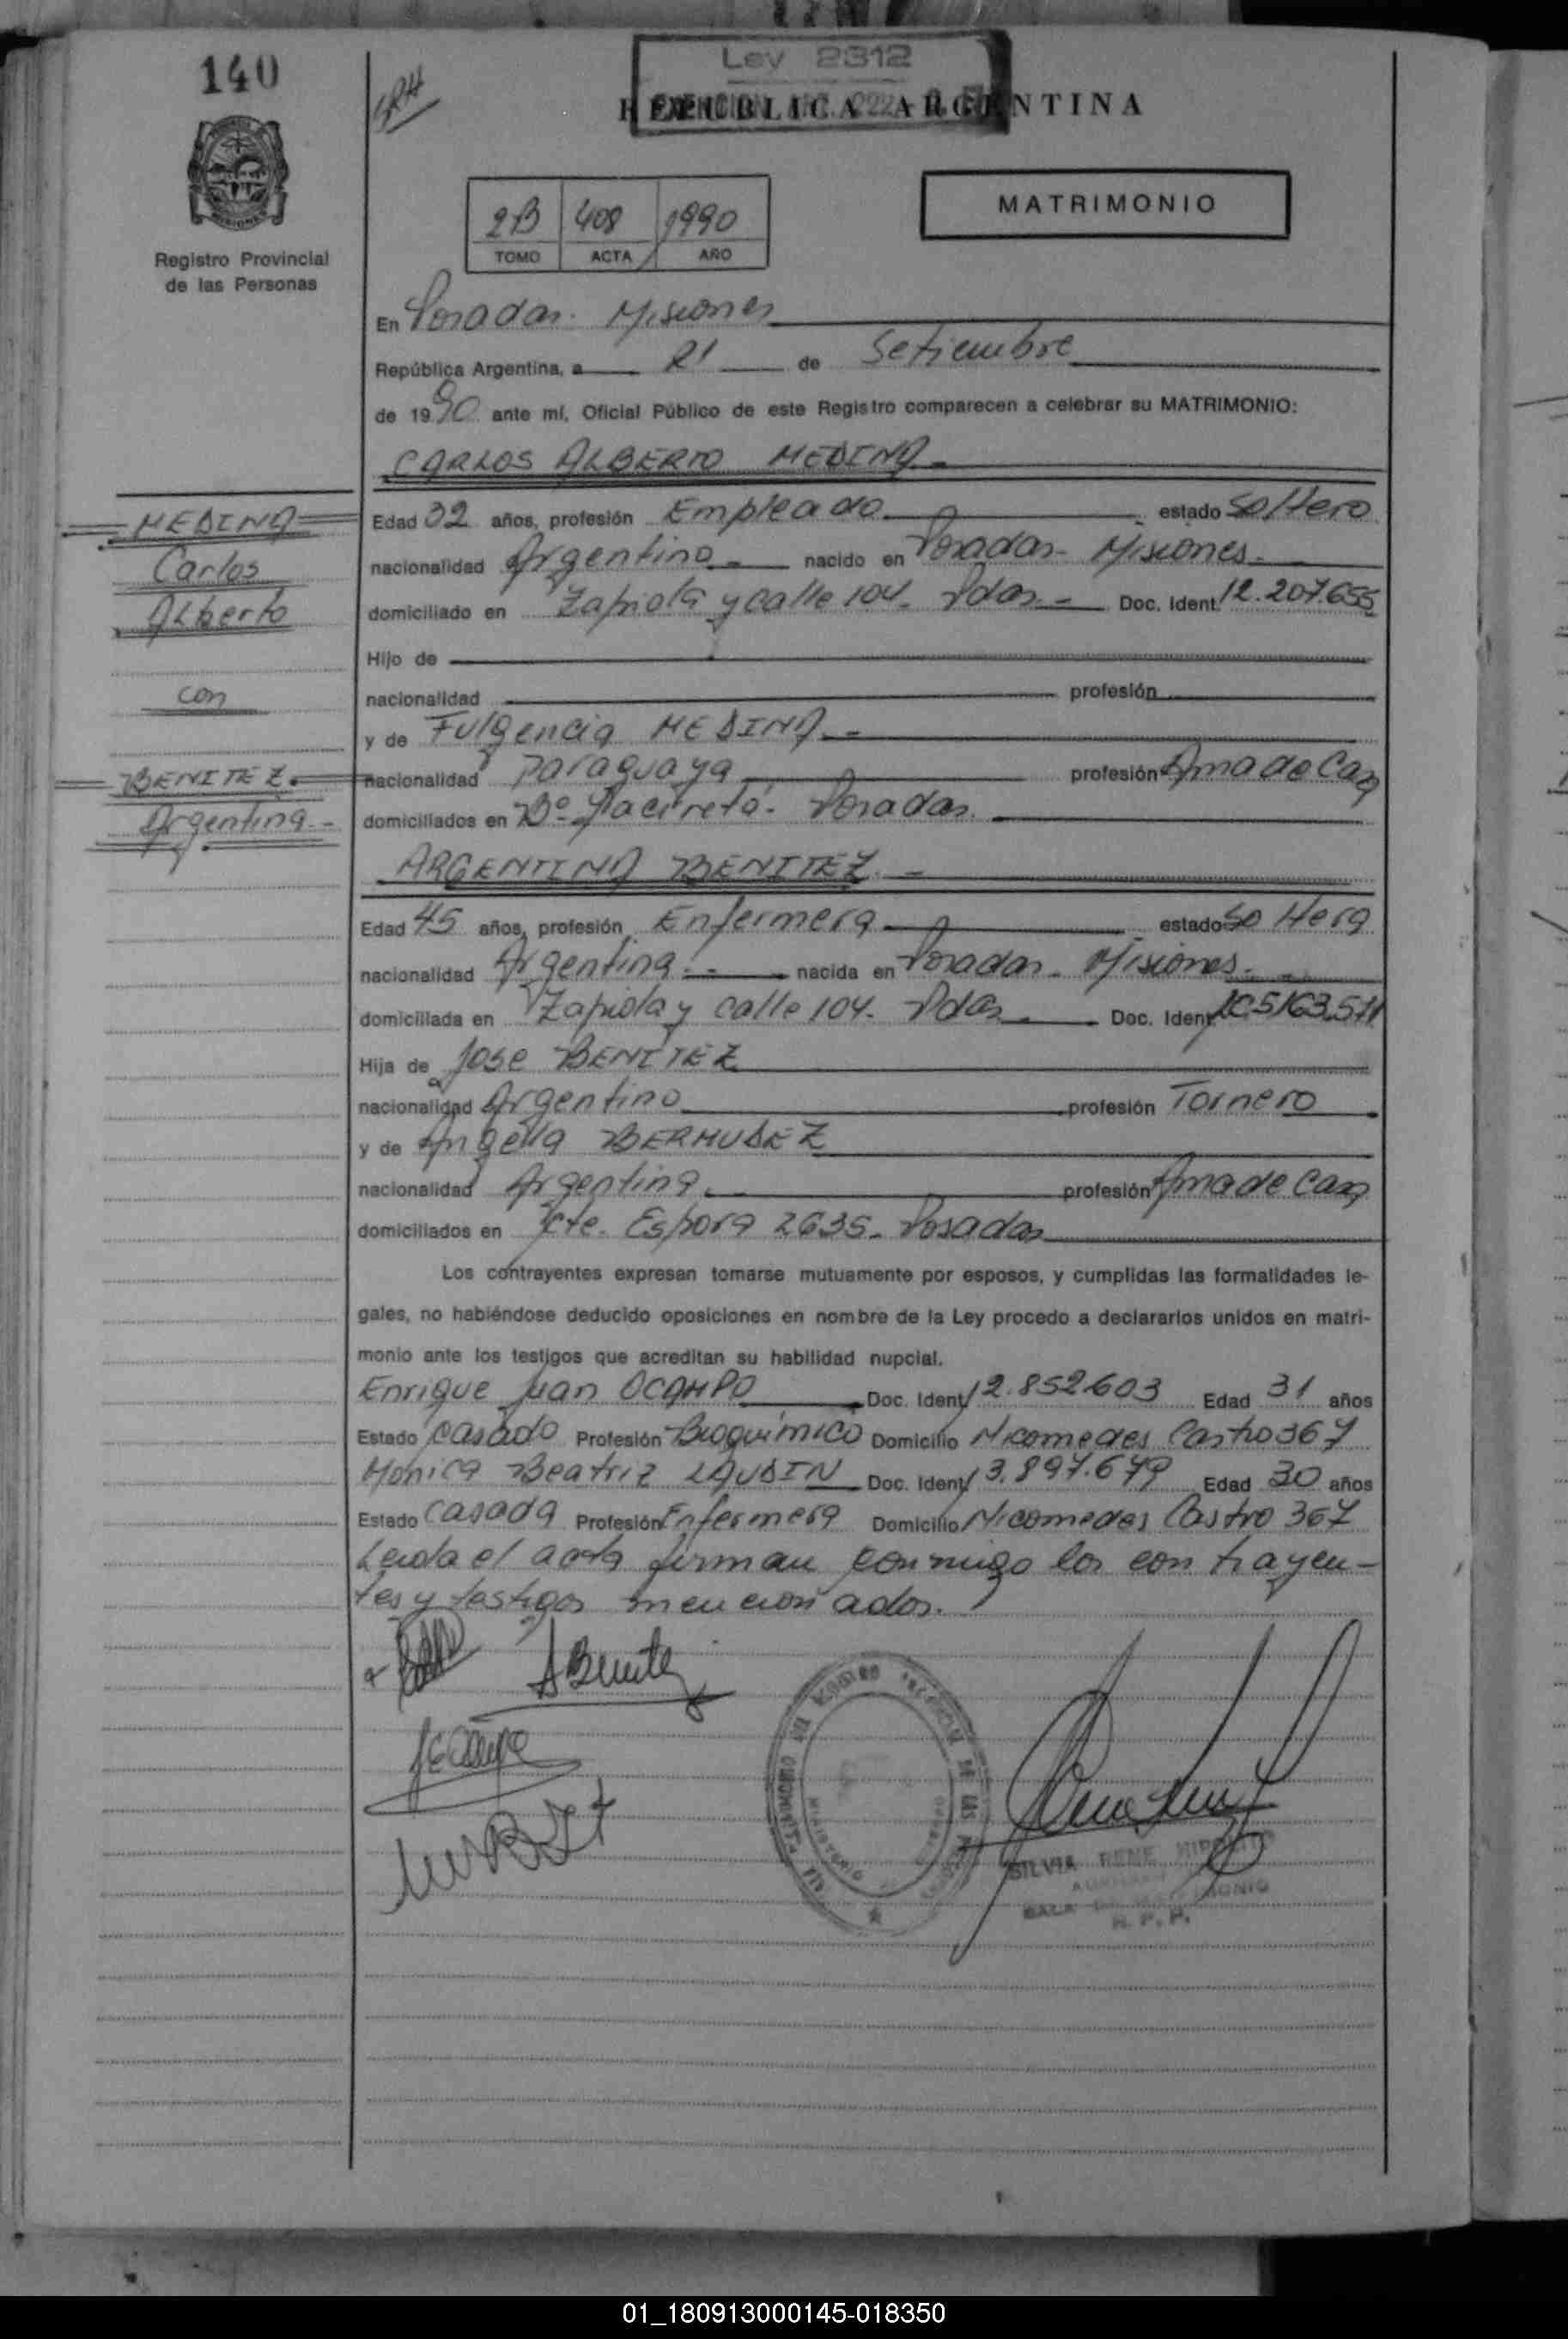 140
Ley 2312
REPUBLICA ARGENTINA
MATRIMONIO
2B 408 1990
TOMO ACTA AÑO
Registro Provincial
de las Personas
En Posadas. Misiones
República Argentina, a 21 de Setiembre
de 1990 ante mí, Oficial Público de este Registro comparecen a celebrar su MATRIMONIO:
CARLOS ALBERTO MEDINA.-
MEDINA
Carlos
Alberto
con
BENITEZ.
Argentina.-
Edad 32 años, profesión Empleado estado Soltero
nacionalidad Argentino.- nacido en Posadas- Misiones.-
domiciliado en Zapiola y calle 104. Pdas.- Doc. Ident. 12.207.655
Hijo de
nacionalidad profesión
y de Fulgencia MEDINA.-
nacionalidad Paraguaya profesión Ama de Casa
domiciliados en Bº Yacireta- Posadas.
ARGENTINA BENITEZ.-
Edad 45 años, profesión Enfermera estado Soltera
nacionalidad Argentina.- nacida en Posadas- Misiones.-
domiciliada en Zapiola y calle 104. Pdas. Doc. Ident.
Hija de Jose BENITEZ
nacionalidad Argentino profesión Tornero
y de Angela BERMUDEZ
nacionalidad Argentina. profesión Ama de Casa
domiciliados en Cte. Espora 2635. Posadas
Los contrayentes expresan tomarse mutuamente por esposos, y cumplidas las formalidades le-
gales, no habiéndose deducido oposiciones en nombre de la Ley procedo a declararlos unidos en matri-
monio ante los testigos que acreditan su habilidad nupcial.
Enrique Juan OCAMPO Doc. Ident. 12.852.603 Edad 31 años
Estado casado Profesión Bioquímico Domicilio Nicomedes Castro 367
Monica Beatriz LAUDIN Doc. Ident. 13.897.679 Edad 30 años
Estado casada Profesión Enfermera Domicilio Nicomedes Castro 367
Leida el acta firman conmigo los contrayen-
tes y testigos mencionados.
ABenitez
SILVIA RENE
SALA DE MATRIMONIO
R. P. P.
01_180913000145-018350